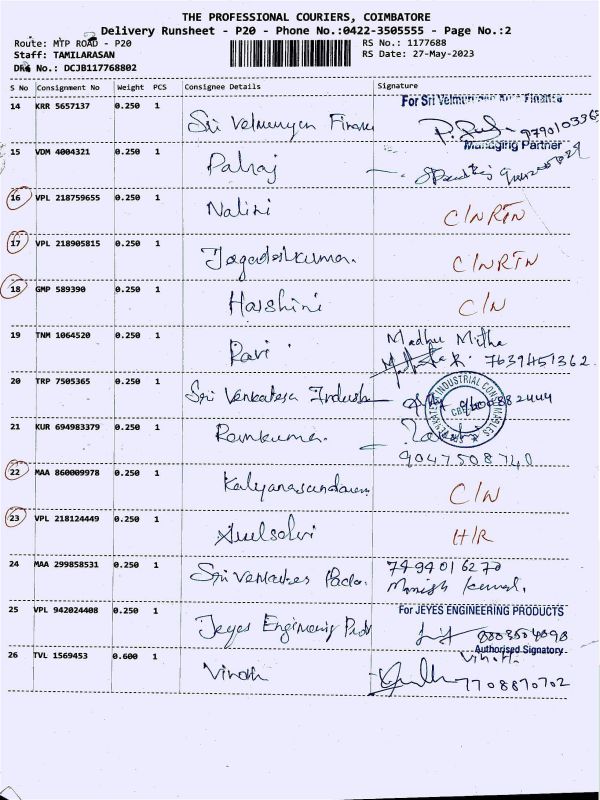 THE PROFESSIONAL COURIERS, COIMBATORE
Delivery Runsheet - P20 - Phone No.:0422-3505555 - Page No.:2
Route: MTP ROAD - P20
RS No.: 1177688
Staff: TAMILARASAN
RS Date: 27-May-2023
DRS No.: DCJB117768802
S No Consignment No Weight PCS Consignee Details Signature
14 KRR 5657137 0.250 1 Sri Velmurugan Finance For Sri Velmurugan Finance
Managing Partner
15 VDM 4004321 0.250 1 Palraj
16 VPL 218759655 0.250 1 Nalini C/N RTN
17 VPL 218905815 0.250 1 Jagadeshkumar. C/N RTN
18 GMP 589390 0.250 1 Harshini C/N
19 TNM 1064520 0.250 1 Ravi Madhu Mitha
7639451362
20 TRP 7505365 0.250 1 Sri Venkatesa
21 KUR 694983379 0.250 1 Ramkumar.
9047508740
22 MAA 860009978 0.250 1 Kalyanasundaram C/N
23 VPL 218124449 0.250 1 H/R
24 MAA 299858531 0.250 1 Sri Venkates 7494016270
Manish kumar.
25 VPL 942024408 0.250 1 Jeyes Engineering Prdt For JEYES ENGINEERING PRODUCTS
Authorised Signatory
26 TVL 1569453 0.600 1 Vinoth Vinoth
7708870702